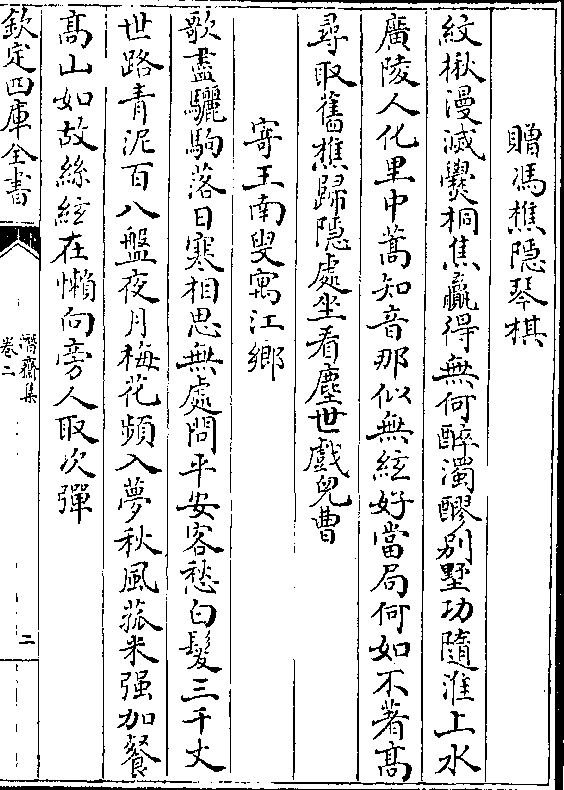 贈馮樵隠琴棋
紋楸漫滅㸑桐焦贏得無何醉濁醪别墅功隨淮上水
廣陵人化里中蒿知音那似無絃好當局何如不著髙
尋取舊樵歸隠處坐看塵世戲兒曹
寄王南叟寓江鄉
歌盡驪駒落日寒相思無處問平安客愁白髮三千丈
世路青泥百八盤夜月梅花頻入夢秋風菰米强加餐
髙山如故絲絃在懶向旁人取次彈
欽定四庫全書
潛齋集
卷二
二